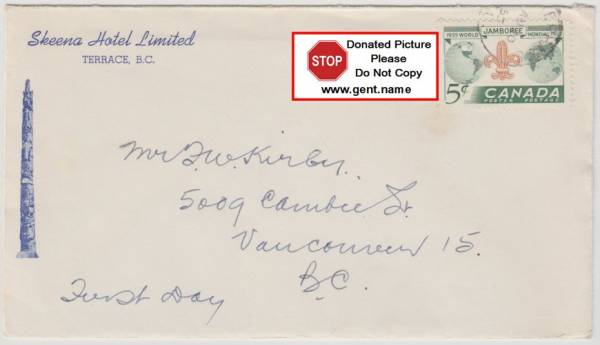 Skeena Hotel Limited
TERRACE, B.C.
STOP
Donated Picture
Please
Do Not Copy
www.gent.name
1955 WORLD JAMBOREE MONDIAL
5¢ CANADA
POSTES POSTAGE
Mr F.W. Kirby.
5009 Cambie St.
Vancouver 15.
B.C.
First Day